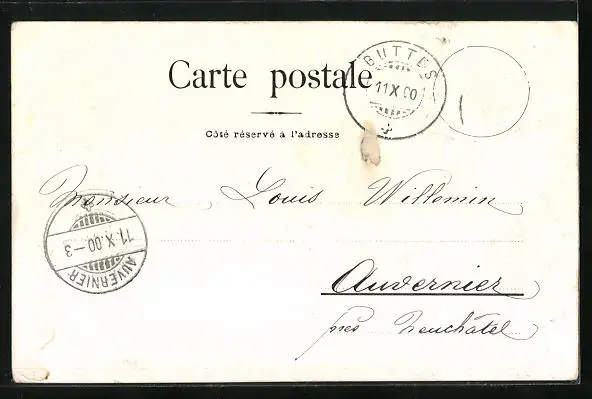 Carte postale
BUTTES
11 X 00
Côté réservé à l'adresse
Monsieur Louis Willemin
11.X.00-3
AUVERNIER
Auvernier
près Neuchâtel